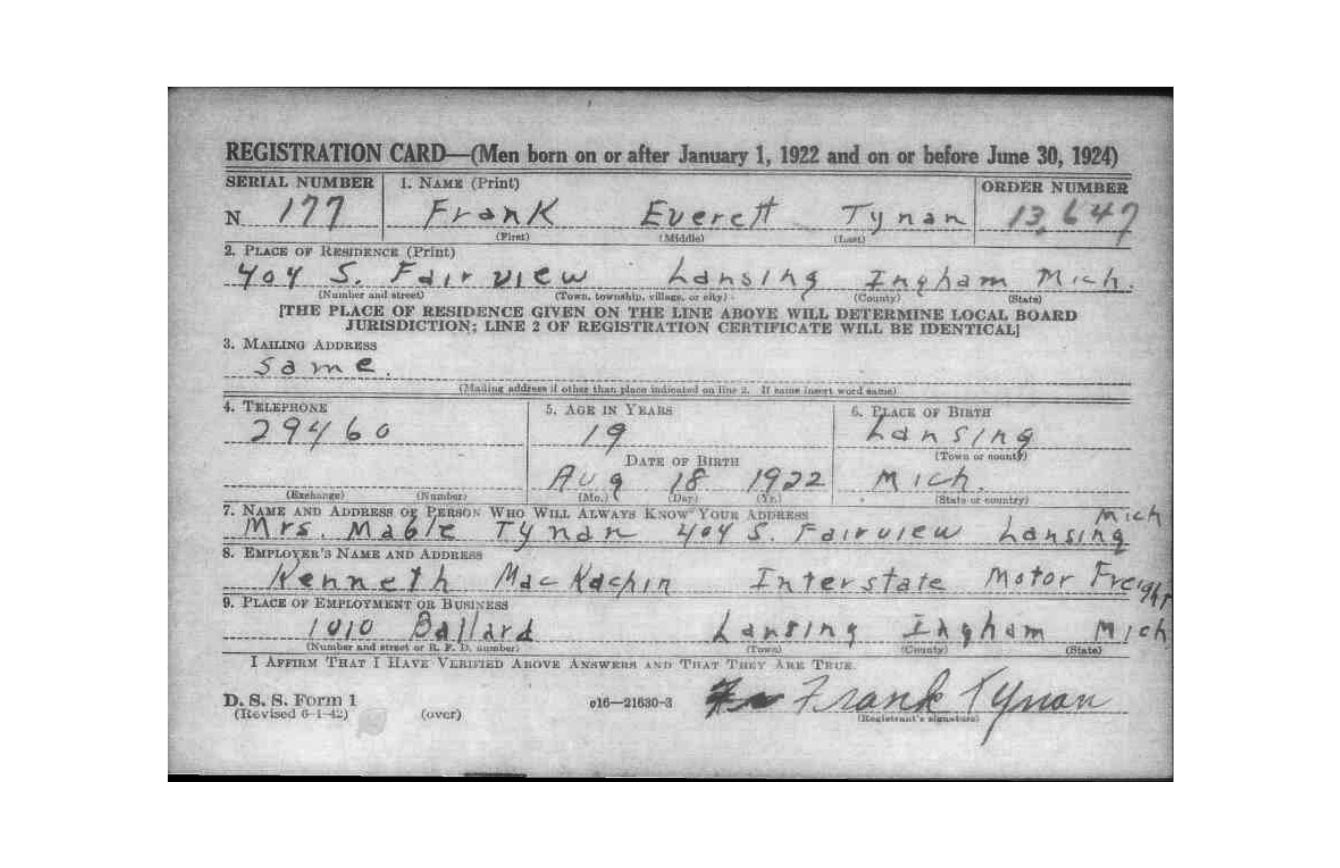 REGISTRATION CARD—(Men born on or after January 1, 1922 and on or before June 30, 1924)
SERIAL NUMBER 1. NAME (Print) ORDER NUMBER
N 177 Frank Everett Tynan 13,647
(First) (Middle) (Last)
2. PLACE OF RESIDENCE (Print)
404 S. Fairview Lansing Ingham Mich.
(Number and street) (Town, township, village, or city) (County) (State)
[THE PLACE OF RESIDENCE GIVEN ON THE LINE ABOVE WILL DETERMINE LOCAL BOARD
JURISDICTION; LINE 2 OF REGISTRATION CERTIFICATE WILL BE IDENTICAL]
3. MAILING ADDRESS
same.
(Mailing address if other than place indicated on line 2. If same insert word same)
4. TELEPHONE 5. AGE IN YEARS 6. PLACE OF BIRTH
29460 19 Lansing
DATE OF BIRTH (Town or county)
Aug 18 1922 Mich.
(Exchange) (Number) (Mo.) (Day) (Yr.) (State or country)
7. NAME AND ADDRESS OF PERSON WHO WILL ALWAYS KNOW YOUR ADDRESS
Mrs. Mable Tynan 404 S. Fairview Lansing Mich
8. EMPLOYER'S NAME AND ADDRESS
Kenneth MacKachin Interstate Motor Freight
9. PLACE OF EMPLOYMENT OR BUSINESS
1010 Ballard Lansing Ingham Mich
(Number and street or R. F. D. number) (Town) (County) (State)
I AFFIRM THAT I HAVE VERIFIED ABOVE ANSWERS AND THAT THEY ARE TRUE.
D. S. S. Form 1 Frank Tynan
(Revised 6-1-42) (over) c16—21630-3 (Registrant's signature)